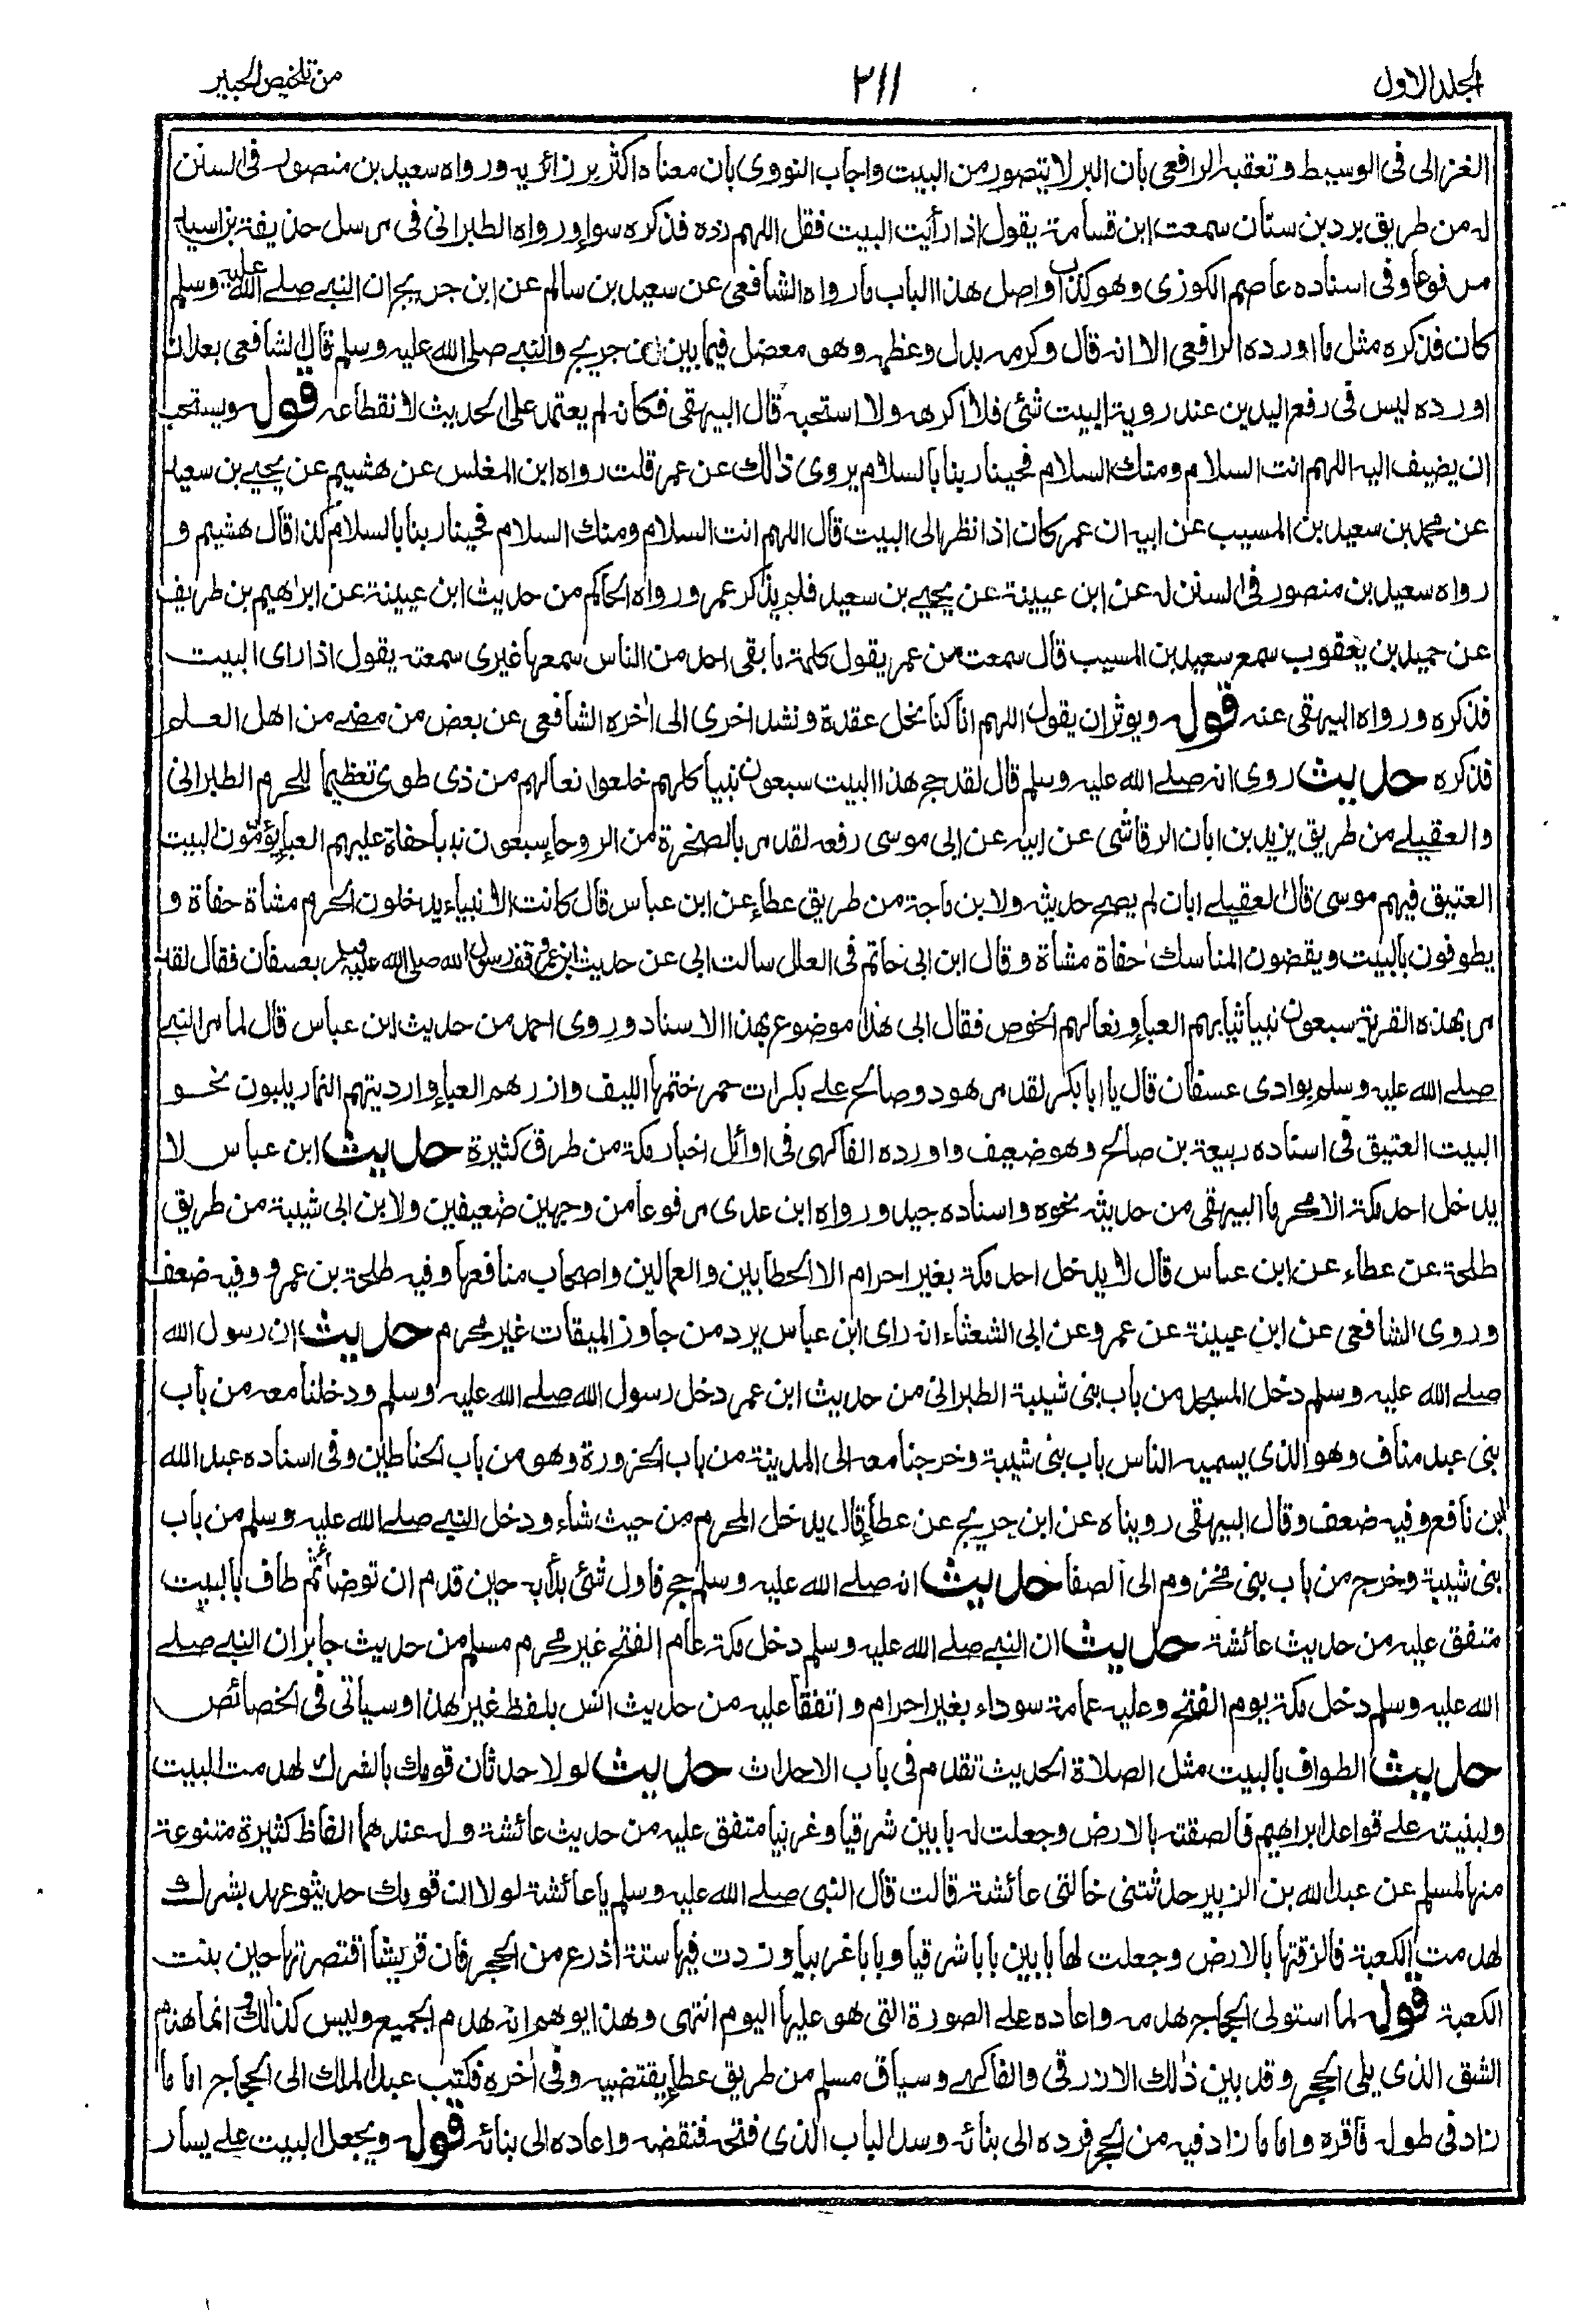 المجلد الاول
٢١١
من تلخيص الحبير
الغزالى فى الوسيط وتعقبه الرافعى بان البر لا يتصور من البيت واجاب النووى بان معناه اكثر بر زائريه ورواه سعيد بن منصور فى السنن
له من طريق برد بن سنان سمعت ابن قسامة يقول اذا رأيت البيت فقل اللهم زده فذكره سواء ورواه الطبرانى فى مرسل حذيفة بن اسيد
مرفوعا وفى اسناده عاصم الكوزى وهو كذاب واصل هذا الباب ما رواه الشافعى عن سعيد بن سالم عن ابن جريج ان النبى صلے الله عليه وسلم
كان فذكره مثل ما اورده الرافعى الا انه قال وكرمه بدل وعظمه وهو معضل فيما بين ابن جريج والنبى صلى الله عليه وسلم قال الشافعى بعد ان
اورده ليس فى رفع اليدين عند روية البيت شئى فلا اكرهه ولا استحبه قال البيهقى فكانه لم يعتمد على الحديث لانقطاعه قوله ويستحب
ان يضيف اليه اللهم انت السلام ومنك السلام فحينا ربنا بالسلام يروى ذلك عن عمر قلت رواه ابن المغلس عن هشيم عن يحيے بن سعيد
عن محمد بن سعيد بن المسيب عن ابيه ان عمر كان اذا نظر الى البيت قال اللهم انت السلام ومنك السلام فحينا ربنا بالسلام كذا قال هشيم و
رواه سعيد بن منصور فى السنن له عن ابن عيينة عن يحيے بن سعيد فلم يذكر عمر ورواه الحاكم من حديث ابن عيينة عن ابراهيم بن طريف
عن حميد بن يعقوب سمع سعيد بن المسيب قال سمعت من عمر يقول كلمة ما بقى احد من الناس سمعها غيرى سمعته يقول اذا راى البيت
فذكره ورواه البيهقى عنه قوله ويوثر ان يقول اللهم انا كنا نحل عقدة ونشد اخرى الى اخره الشافعى عن بعض من مضے من اهل العلم
فذكره حديث روى انه صلے الله عليه وسلم قال لقد حج هذا البيت سبعون نبيا كلهم خلعوا نعالهم من ذى طوى تعظيما للحرم الطبرانى
والعقيلے من طريق يزيد بن ابان الرقاشى عن ابيه عن ابى موسى رفعه لقد مر بالصخرة من الروحاء سبعون نبيا حفاة عليهم العباء يؤمون البيت
العتيق فيهم موسى قال العقيلے ابان لم يصح حديثه ولابن ماجة من طريق عطاء عن ابن عباس قال كانت الانبياء يدخلون الحرم مشاة حفاة و
يطوفون بالبيت ويقضون المناسك حفاة مشاة وقال ابن ابى حاتم فى العلل سالت ابى عن حديث ابن عمر وقف رسول الله صلى الله عليه وسلم بعسفان فقال لقد
مر بهذه القرية سبعون نبيا ثيابهم العباء ونعالهم الخوص فقال ابى هذا موضوع بهذا الاسناد وروى احمد من حديث ابن عباس قال لما مر النبى
صلے الله عليه وسلم بوادى عسفان قال يا ابا بكر لقد مر هود وصالح علے بكرات حمر ختمها الليف وازرهم العباء وارديتهم النمار يلبون نحو
البيت العتيق فى اسناده ربيعة بن صالح وهو ضعيف واورده الفاكهى فى اوائل اخبار مكة من طرق كثيرة حديث ابن عباس لا
يدخل احد مكة الا محرما البيهقى من حديثه نحوه واسناده جيد ورواه ابن عدى مرفوعا من وجهين ضعيفين ولابن ابى شيبة من طريق
طلحة عن عطاء عن ابن عباس قال لا يدخل احد مكة بغير احرام الا الحطابين والعمالين واصحاب منافعها وفيه طلحة بن عمرو وفيه ضعف
وروى الشافعى عن ابن عيينة عن عمرو عن ابى الشعثاء انه راى ابن عباس يرد من جاوز الميقات غير محرم حديث ان رسول الله
صلے الله عليه وسلم دخل المسجد من باب بنى شيبة الطبرانى من حديث ابن عمر دخل رسول الله صلے الله عليه وسلم ودخلنا معه من باب
بنى عبد مناف وهو الذى يسميه الناس باب بنى شيبة وخرجنا معه الى المدينة من باب الحزورة وهو من باب الحناطين وفى اسناده عبد الله
ابن نافع وفيه ضعف وقال البيهقى رويناه عن ابن جريج عن عطاء قال يدخل المحرم من حيث شاء ودخل النبى صلے الله عليه وسلم من باب
بنى شيبة وخرج من باب بنى مخزوم الى الصفا حديث انه صلے الله عليه وسلم حج فاول شئى بدأ به حين قدم ان توضأ ثم طاف بالبيت
متفق عليه من حديث عائشة حديث ان النبى صلے الله عليه وسلم دخل مكة عام الفتح غير محرم مسلم من حديث جابر ان النبى صلے
الله عليه وسلم دخل مكة يوم الفتح وعليه عمامة سوداء بغير احرام واتفقا عليه من حديث انس بلفظ غير هذا وسياتى فى الخصائص
حديث الطواف بالبيت مثل الصلاة الحديث تقدم فى باب الاحداث حديث لولا حدثان قومك بالشرك لهدمت البيت
ولبنيته علے قواعد ابراهيم فالصقته بالارض وجعلت له بابين شرقيا وغربيا متفق عليه من حديث عائشة وله عندهما الفاظ كثيرة متنوعة
منها لمسلم عن عبد الله بن الزبير حدثتنى خالتى عائشة قالت قال النبى صلے الله عليه وسلم يا عائشة لولا ان قومك حديثو عهد بشرك
لهدمت الكعبة فالزقتها بالارض وجعلت لها بابين بابا شرقيا وبابا غربيا وزدت فيها ستة اذرع من الحجر فان قريشا اقتصرتها حين بنت
الكعبة قوله لما استولى الحجاج هدمه واعاده علے الصورة التى هو عليها اليوم انتهى وهذا يوهم انه هدم الجميع وليس كذلك وانما هدم
الشق الذى يلى الحجر وقد بين ذلك الازرقى والفاكهے وسياق مسلم من طريق عطاء يقتضيه وفى اخره فكتب عبد الملك الى الحجاج اما ما
زاد فى طوله فاقره واما ما زاد فيه من الحجر فرده الى بنائه وسد الباب الذى فتحه فنقضه واعاده الى بنائه قوله ويجعل البيت علے يسار